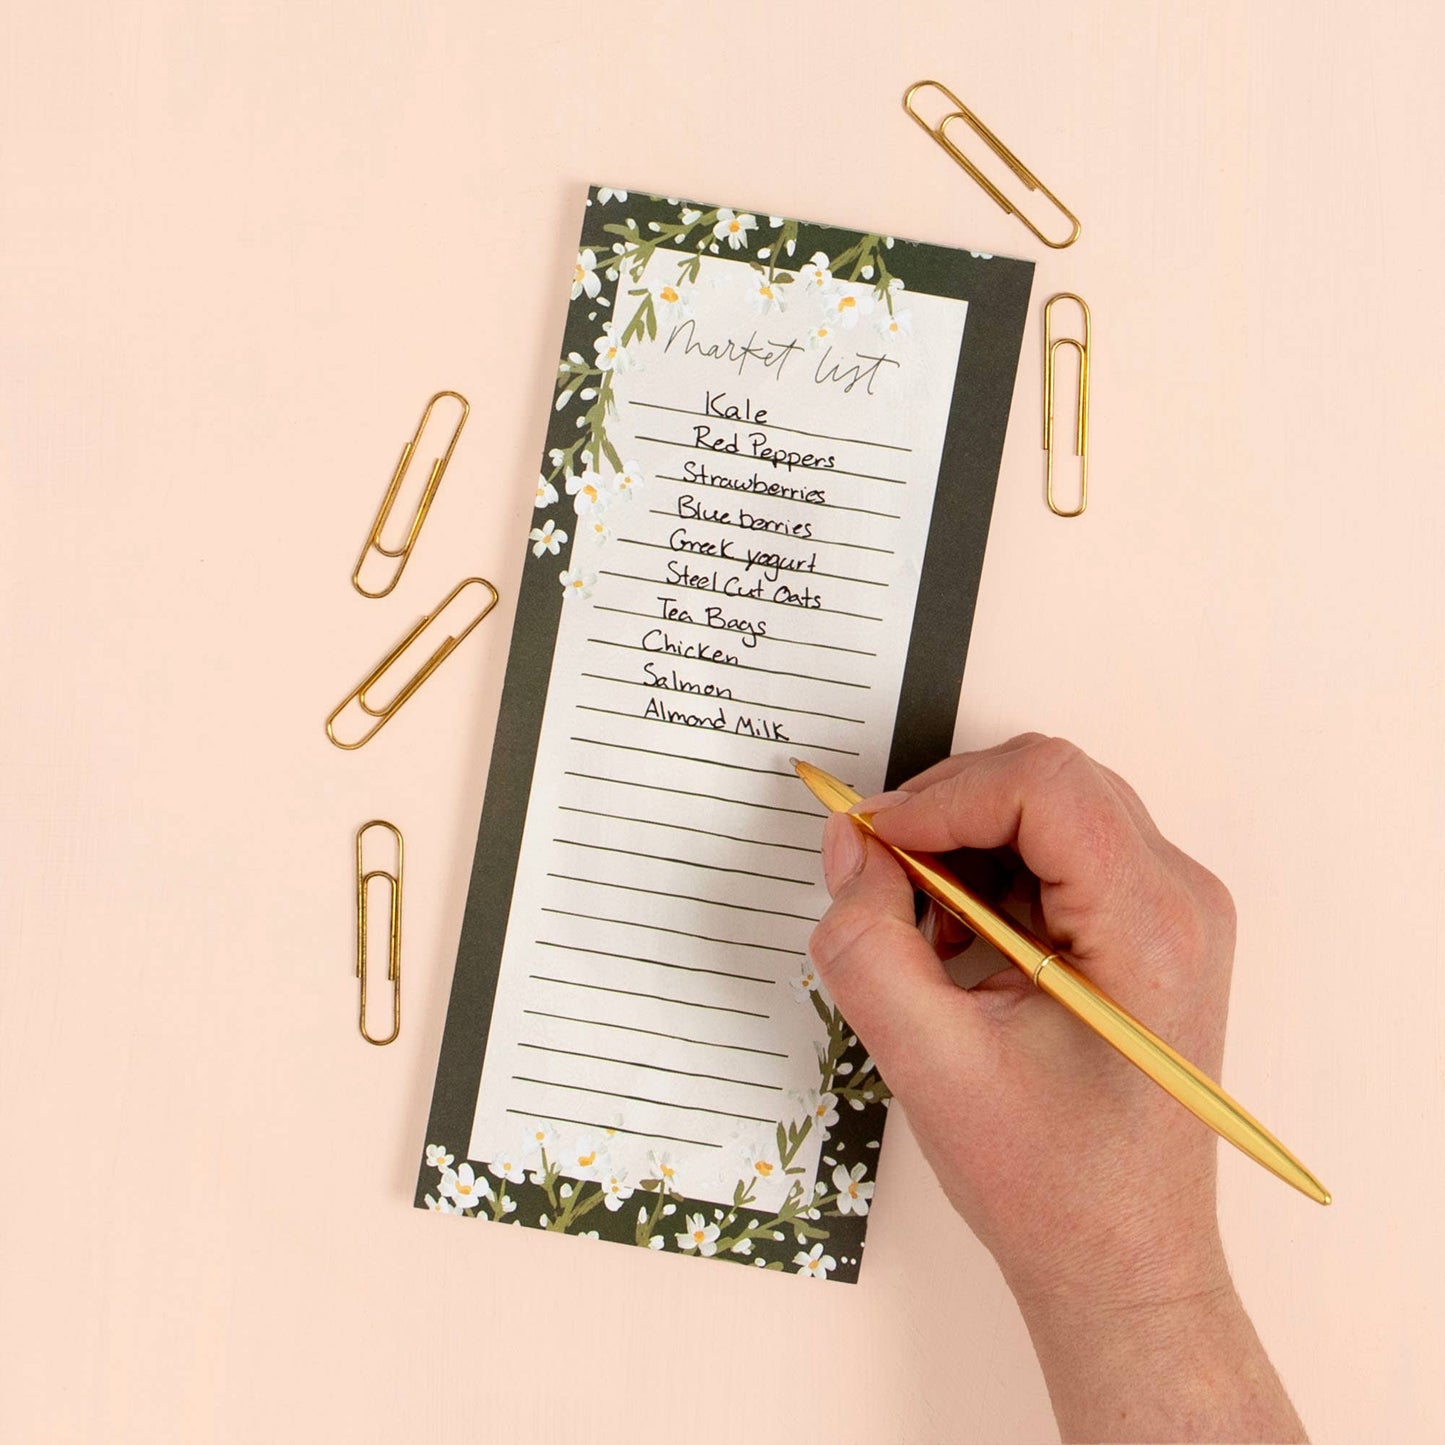 Market list
Kale
Red Peppers
Strawberries
Blueberries
Greek yogurt
Steel Cut Oats
Tea Bags
Chicken
Salmon
Almond Milk